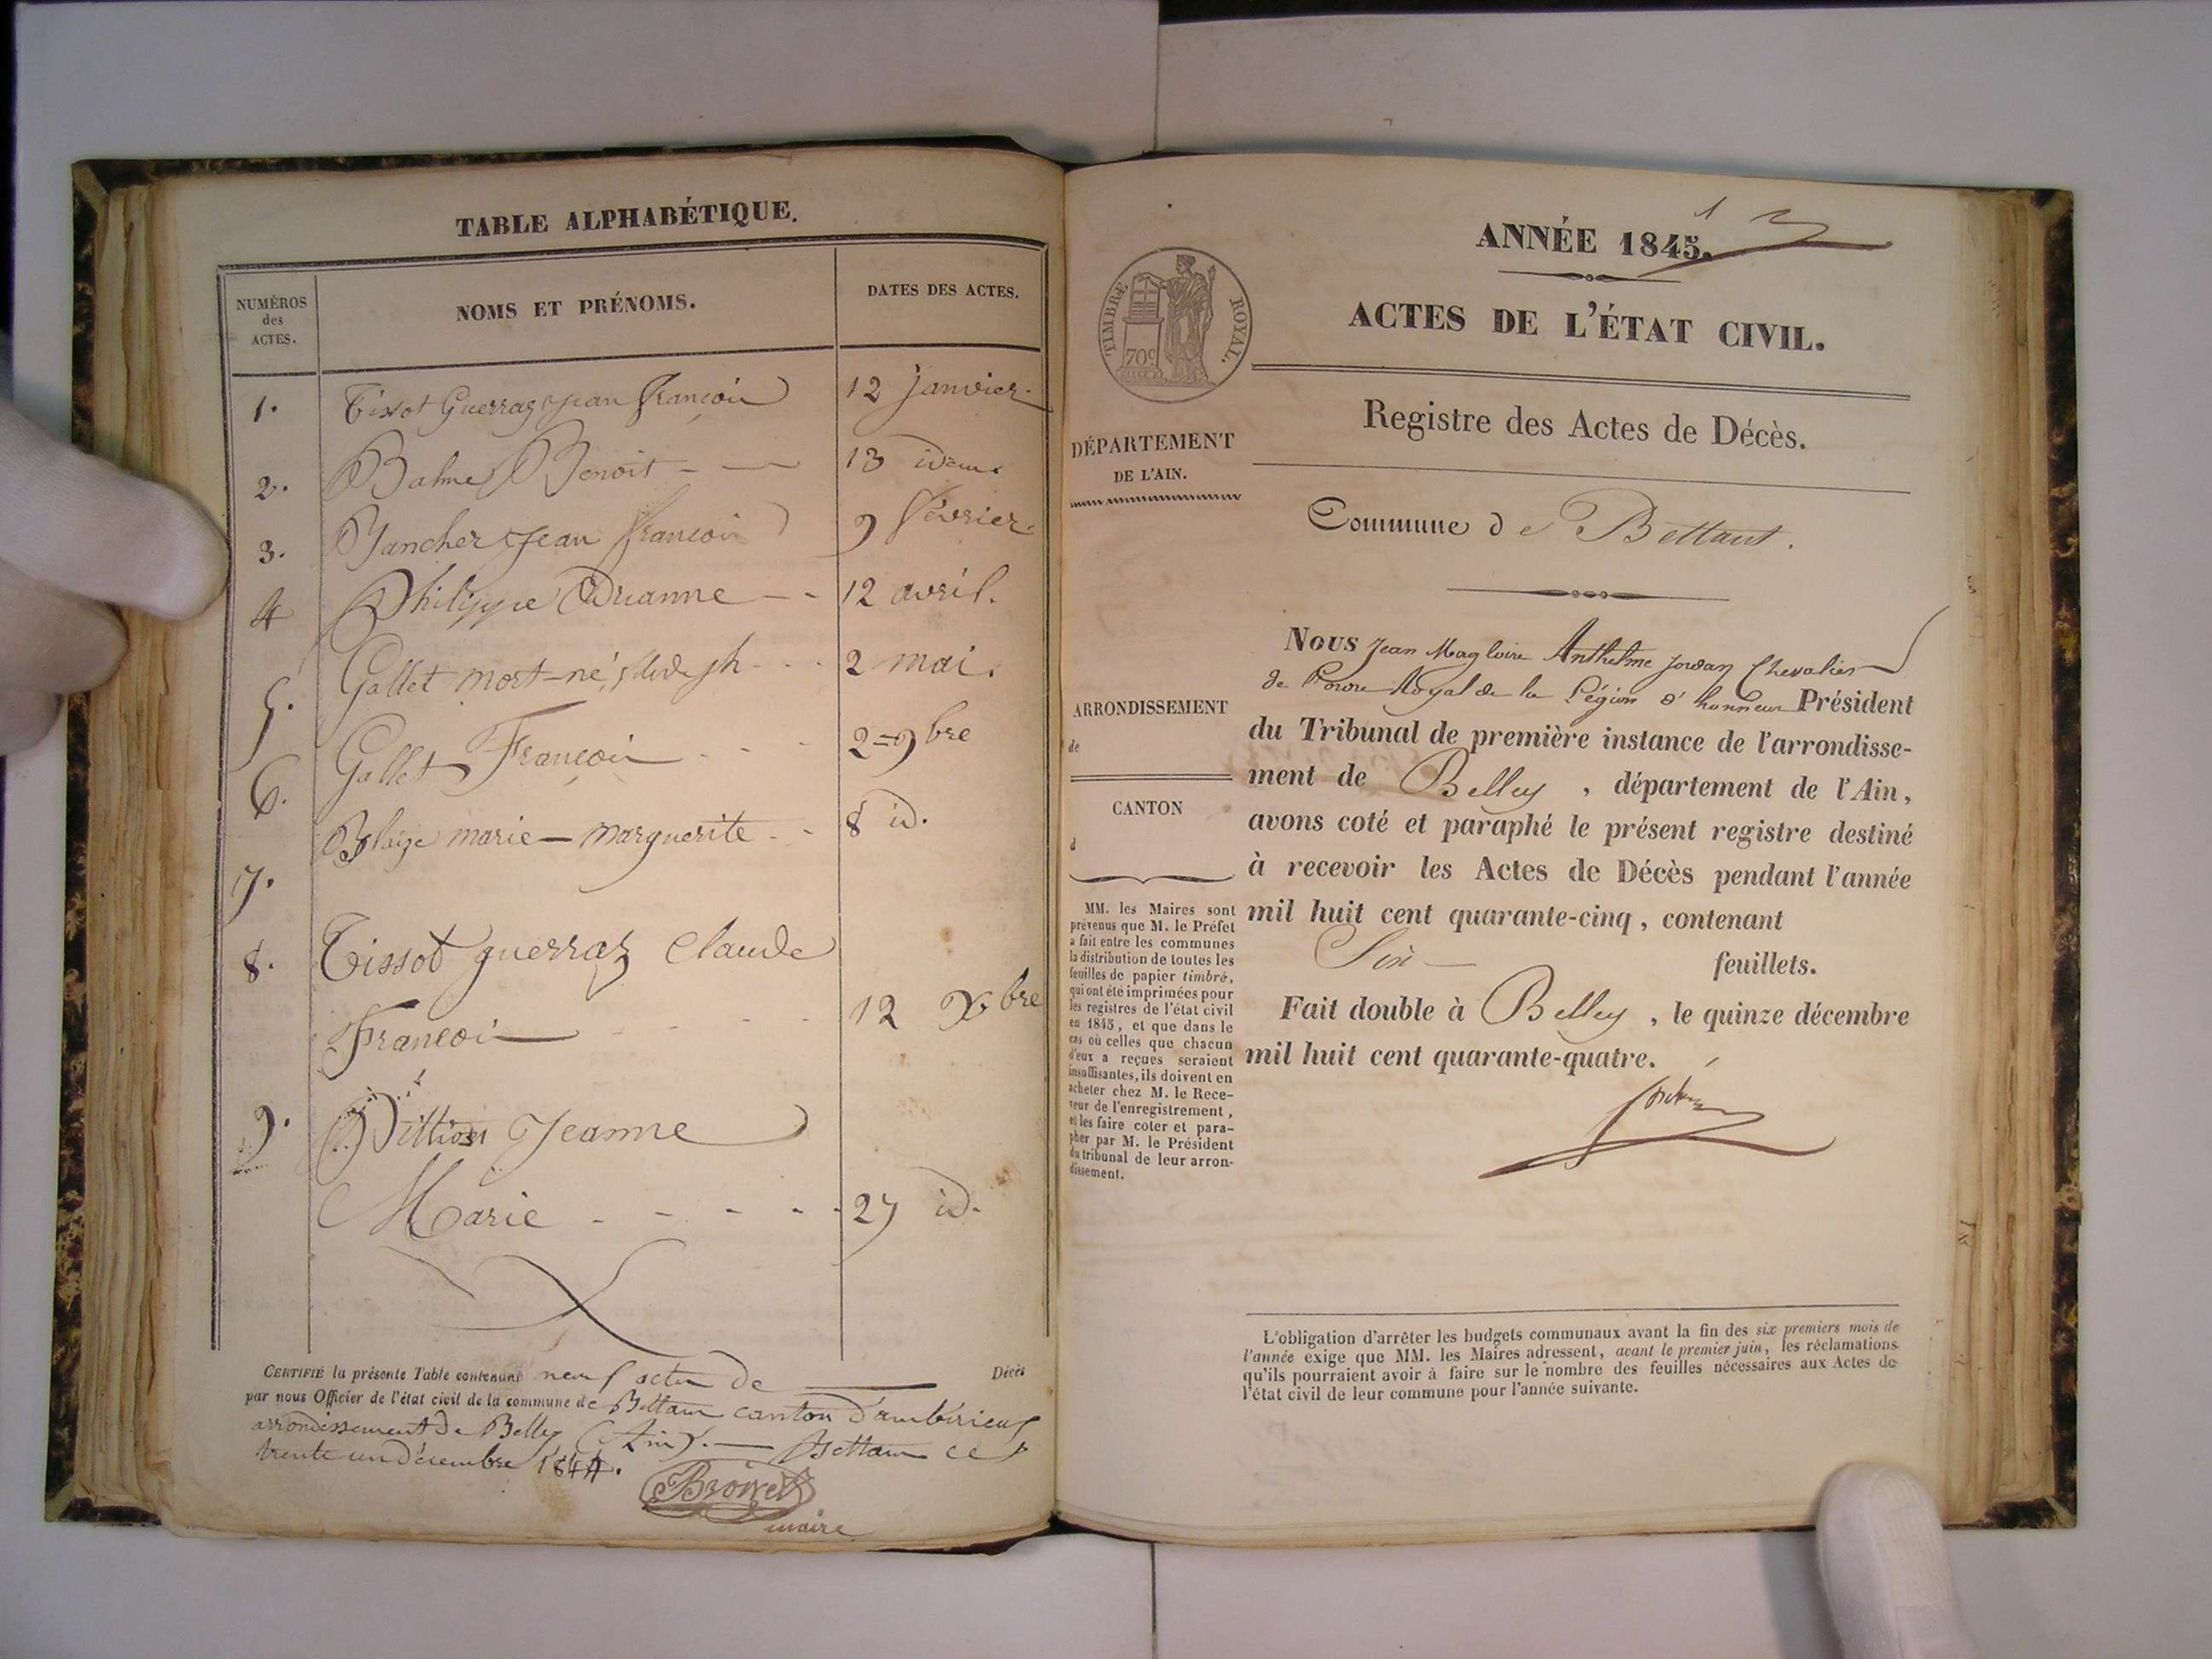 TABLE ALPHABÉTIQUE.
NUMÉROS
des
ACTES.
NOMS ET PRÉNOMS.
DATES DES ACTES.
1. Tissot Guerraz jean françois 12 janvier.
2. Balme Benoit 13 idem.
3. Jean françois 9 février.
4 Philippe 12 avril.
5. Gallet mort-né 2 mai.
6. Gallet François 2=9bre
7. Blaize marie-marguerite 8 id.
8. Tissot guerraz Claude
François 12 Xbre
9. Jeanne
Marie 27 id.
CERTIFIÉ la présente Table contenant neuf actes de Décès
par nous Officier de l'état civil de la commune de Bettant canton d'ambérieux
arrondissement de Belley (Ain). Bettant ce
trente un décembre 1844.
maire
ANNÉE 1845.
1
ACTES DE L'ÉTAT CIVIL.
TIMBRE ROYAL.
70c
Registre des Actes de Décès.
DÉPARTEMENT
DE L'AIN.
Commune de Bettant.
Nous Jean Magloire Anthelme Jordan Chevalier
de l'ordre Royal de la Légion d'honneur Président
du Tribunal de première instance de l'arrondisse-
ment de Belley, département de l'Ain,
avons coté et paraphé le présent registre destiné
à recevoir les Actes de Décès pendant l'année
mil huit cent quarante-cinq, contenant
Six feuillets.
Fait double à Belley, le quinze décembre
mil huit cent quarante-quatre.
ARRONDISSEMENT
de
CANTON
d
MM. les Maires sont
prévenus que M. le Préfet
a fait entre les communes
la distribution de toutes les
feuilles de papier timbré,
qui ont été imprimées pour
les registres de l'état civil
en 1845, et que dans le
cas où celles que chacun
d'eux a reçues seraient
insuffisantes, ils doivent en
acheter chez M. le Rece-
veur de l'enregistrement,
et les faire coter et para-
pher par M. le Président
du tribunal de leur arron-
dissement.
L'obligation d'arrêter les budgets communaux avant la fin des six premiers mois de
l'année exige que MM. les Maires adressent, avant le premier juin, les réclamations
qu'ils pourraient avoir à faire sur le nombre des feuilles nécessaires aux Actes de
l'état civil de leur commune pour l'année suivante.